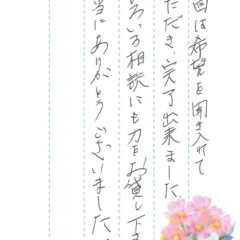 回は希望を聞き入れて
ただき、完了出来ました
ろいろ相談にも力をお貸し下さ
当にありがとうございました。